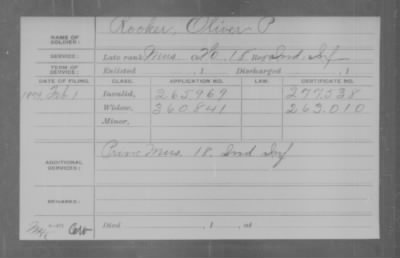 NAME OF SOLDIER: Rooker, Oliver P
SERVICE: Late rank Mus Co 18 Reg't Ind. Inf
TERM OF SERVICE: Enlisted , 1 Discharged , 1
DATE OF FILING. CLASS. APPLICATION NO. LAW. CERTIFICATE NO.
Feb 1 Invalid, 265.969 277.538
Widow, 360.841 263.010
Minor,
ADDITIONAL SERVICES: Mus. 18 Ind Inf
REMARKS:
Died , 1 , at